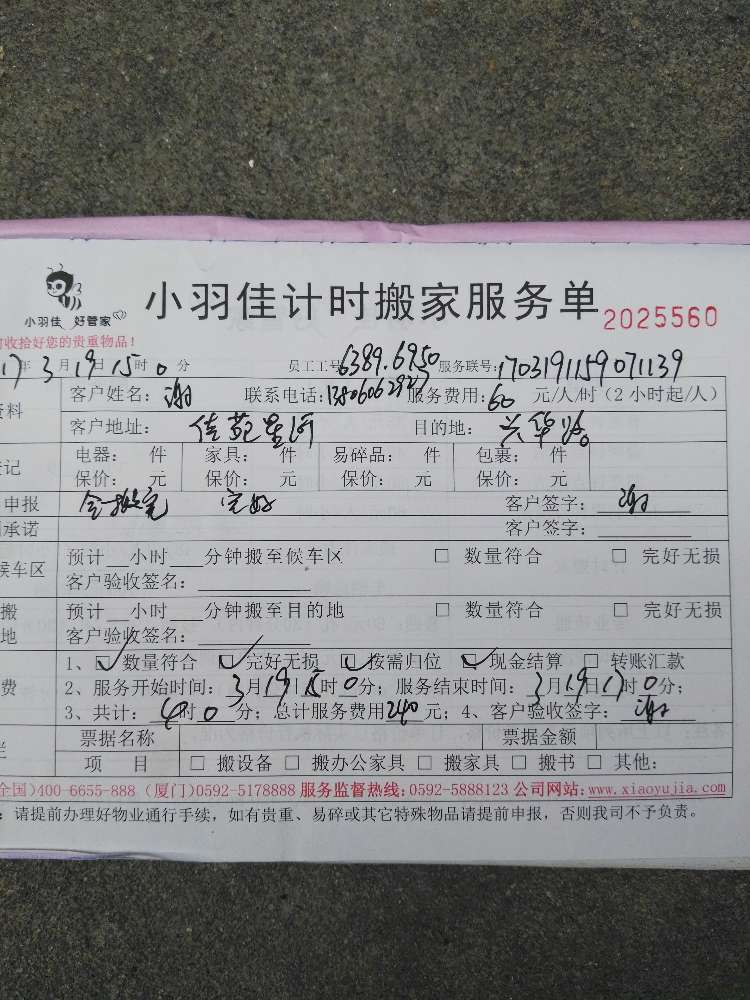 小羽佳 好管家
小羽佳计时搬家服务单 2025560
收拾好您的贵重物品！
17年3月19 15时0分 员工工号6389.6950 服务联号:1703191159071139
资料
客户姓名：谢 联系电话: 服务费用:60 元/人/时（2小时起/人）
客户地址： 佳苑星河 目的地： 兴华路
登记
电器： 件 家具： 件 易碎品： 件 包裹： 件
保价： 元 保价： 元 保价： 元 保价： 元
申报 完好 客户签字：谢
承诺 客户签字：
候车区
预计__小时___分钟搬至候车区 □ 数量符合 □ 完好无损
客户验收签名：
搬
地
预计__小时___分钟搬至目的地 □ 数量符合 □ 完好无损
客户验收签名：
费
1、☑ 数量符合 ☑ 完好无损 ☑ 按需归位 ☑ 现金结算 □ 转账汇款
2、服务开始时间：3月19日15时0分；服务结束时间：3月19日17时0分；
3、共计：4时0分；总计服务费用240元；4、客户验收签字：谢
票据名称 票据金额
项 目 □ 搬设备 □ 搬办公家具 □ 搬家具 □ 搬书 □ 其他:
全国)400-6655-888 (厦门)0592-5178888 服务监督热线:0592-5888123 公司网站:www.xiaoyujia.com
：请提前办理好物业通行手续，如有贵重、易碎或其它特殊物品请提前申报，否则我司不予负责。